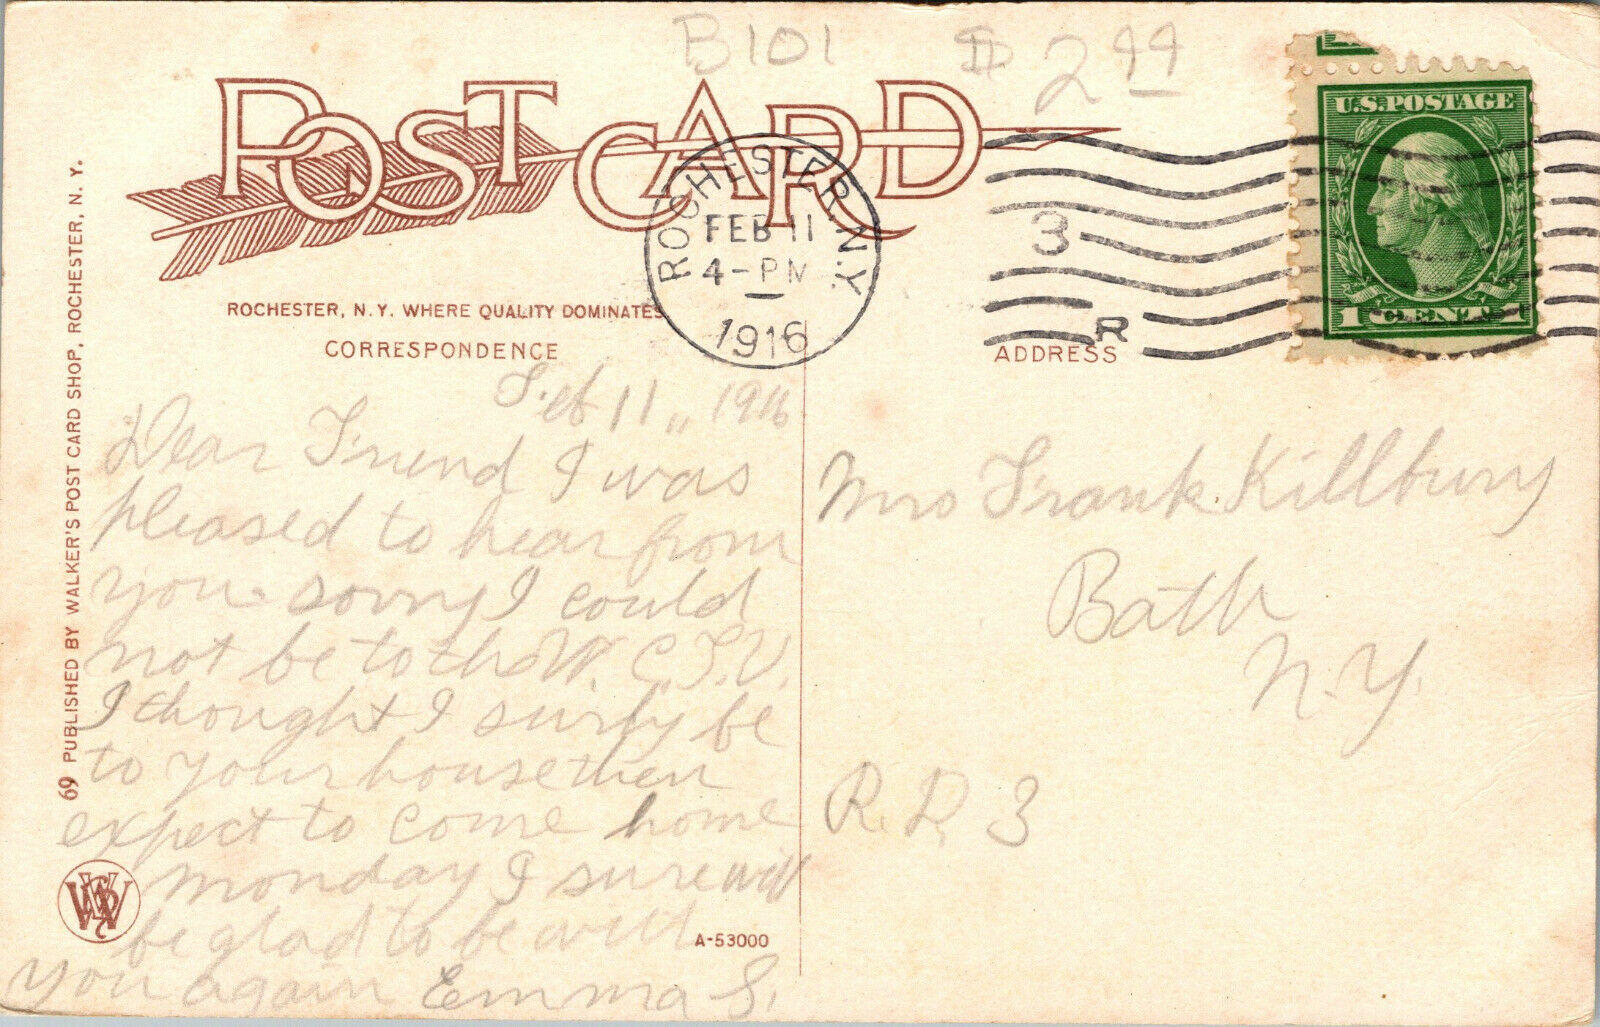 B101 $2.99
POST CARD
U.S. POSTAGE
1 CENT 1
ROCHESTER. N.Y.
FEB 11
4-PM
1916
3
R
ROCHESTER, N. Y. WHERE QUALITY DOMINATES
CORRESPONDENCE
ADDRESS
Feb 11,, 1916
Dear Friend I was
pleased to hear from
you sorry I could
not be to the W.C.T.U.
I thought I surly be
to your house then
expect to come home
monday I sure will
be glad to be with
you again Emma S.
Mrs Frank Killbury
Bath
N.Y.
R.D. 3
69 PUBLISHED BY WALKER'S POST CARD SHOP, ROCHESTER, N. Y.
A-53000